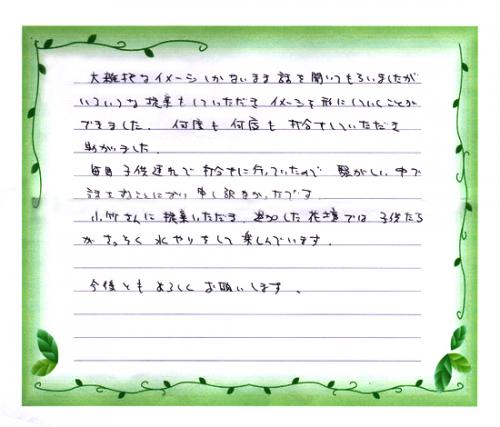 大雑把なイメージしかないまま話を聞いてもらいましたが
いろいろな提案もしていただきイメージを形にしていくことが
できました。何度も何度も打合せしていただき
助かりました。
毎回子供連れで打合せに行っていたので騒がしい中で
話をすることになり申し訳なかったです
小竹さんに提案いただき、追加した花壇では子供たち
がさっそく水やりをして楽しんでいます。
今後ともよろしくお願いします。